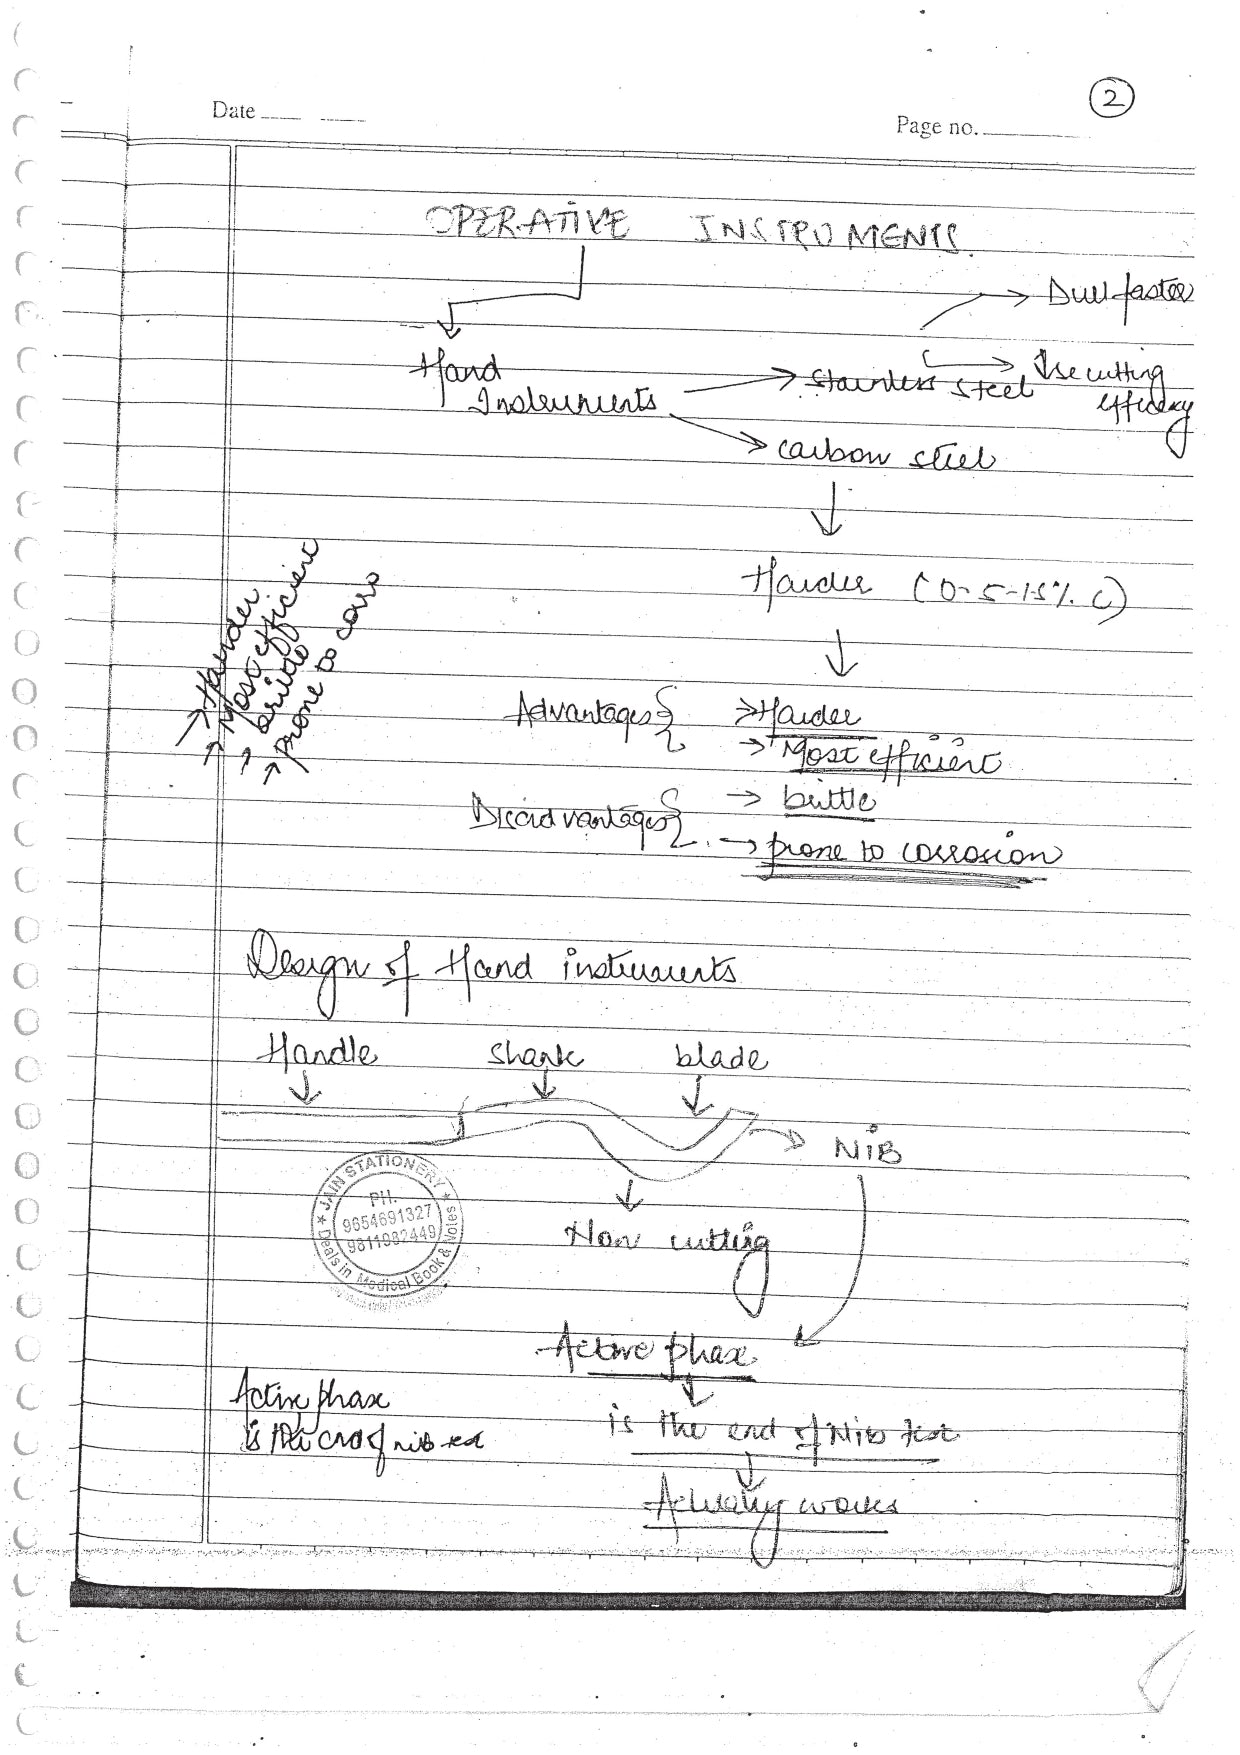 2
Date
Page no.
OPERATIVE INSTRUMENTS.
→ Dull faster
Hand
Instruments
→ stainless steel
→ ↓se cutting
efficacy
→ carbon steel
Harder (0.5-1.5% C)
Advantages
→ Harder
→ Most efficient
Disadvantages
→ brittle
→ prone to corrosion
→ Harder
→ Most efficient
→ brittle
→ Prone to corro
Design of Hand instruments
Handle shank blade
→ NIB
Non cutting
JAIN STATIONERY
PH.
9654691327
9811982449
Deals in Medical Book & Notes
Active phase
is the end of Nib
Actually works
Active phase
is the end of nib